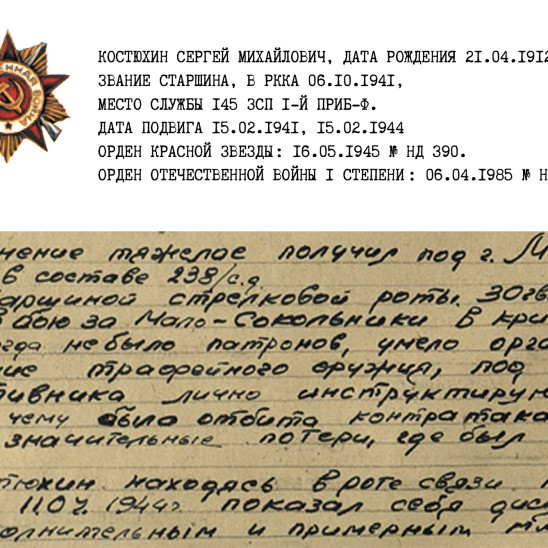 КОСТЮХИН СЕРГЕЙ МИХАЙЛОВИЧ, ДАТА РОЖДЕНИЯ 21.04.1912
ЗВАНИЕ СТАРШИНА, В РККА 06.10.1941,
МЕСТО СЛУЖБЫ 145 ЗСП 1-Й ПРИБ-Ф.
ДАТА ПОДВИГА 15.02.1941, 15.02.1944
ОРДЕН КРАСНОЙ ЗВЕЗДЫ: 16.05.1945 № НД 390.
ОРДЕН ОТЕЧЕСТВЕННОЙ ВОЙНЫ I СТЕПЕНИ: 06.04.1985 № Н
нение тяжелое получил под г. М
в составе 238/с.д.
аршиной стрелковой роты. 30гв
в бою за Мало-Сокольники в кри
огда не было патронов, умело орга
ние трофейного оружия, под
тивника лично инструктирую
чему была отбита контратака
значительные потери, где был
тюхин находясь в роте связи
1944г. показал себя дис
олнительным и примерным мл